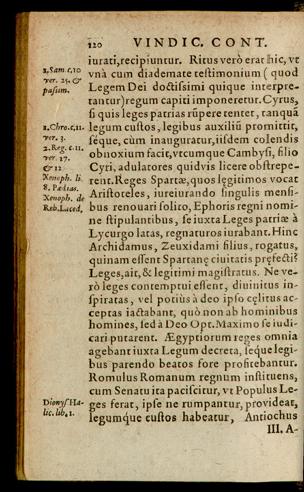 120 VINDIC. CONT.
iurati, recipiuntur. Ritus verò erat hic, vt
vnà cum diademate testimonium (quod
Legem Dei doctissimi quique interpre-
tantur) regum capiti imponeretur. Cyrus,
si quis leges patrias rūpere tentet, tanquā
legum custos, legibus auxiliū promittit,
séque, cùm inauguratur, iisdem colendis
obnoxium facit, vtcumque Cambysi, filio
Cyri, adulatores quiduis licere obstrepe-
rent. Reges Spartæ, quos lęgitimos vocat
Aristoteles, iureiurando singulis mensi-
bus renouari solito, Ephoris regni nomi-
ne stipulantibus, se iuxta Leges patriæ à
Lycurgo latas, regnaturos iurabant. Hinc
Archidamus, Zeuxidami filius, rogatus,
quinam essent Spartanę ciuitatis pręfecti?
Leges, ait, & legitimi magistratus. Ne ve-
rò leges contemptui essent, diuinitus in-
spiratas, vel potiùs à deo ipso cęlitus ac-
ceptas iactabant, quò non ab hominibus
homines, sed à Deo Opt. Maximo se iudi-
cari putarent. Ægyptiorum reges omnia
agebant iuxta Legum decreta, séque legi-
bus parendo beatos fore profitebantur.
Romulus Romanum regnum instituens,
cum Senatu ita paciscitur, vt Populus Le-
ges ferat, ipse ne rumpantur, prouideat,
legumque custos habeatur, Antiochus
III. A-
1. Sam. c. 10
ver. 25. &
passum.
1. Chro. c. 11.
ver. 3.
2. Reg. c. 11.
ver. 17.
& 12
Xenoph. li.
8. Pædias.
Xenoph. de
Reb. Laced,
Dionys Ha-
lic. lib. 2.